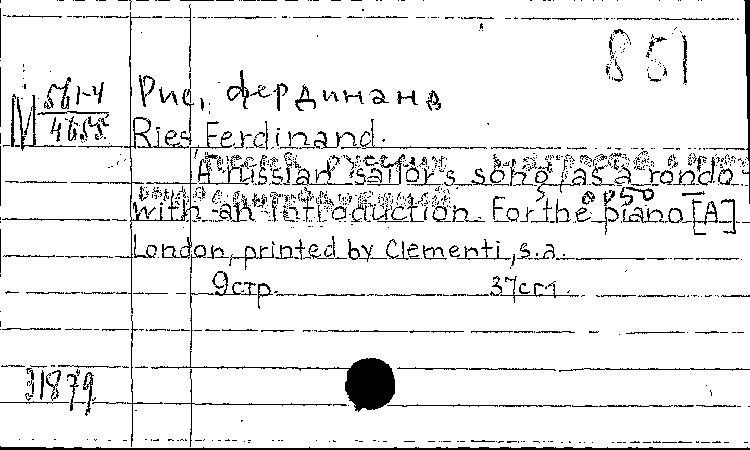 851
М 561-4
4655
Рис, Фердинанд
Ries Ferdinand.
A russian sailor's song as a rondo
with an introduction. For the piano [A]
London, printed by Clementi, s.a.
9стр. 37см.
31879